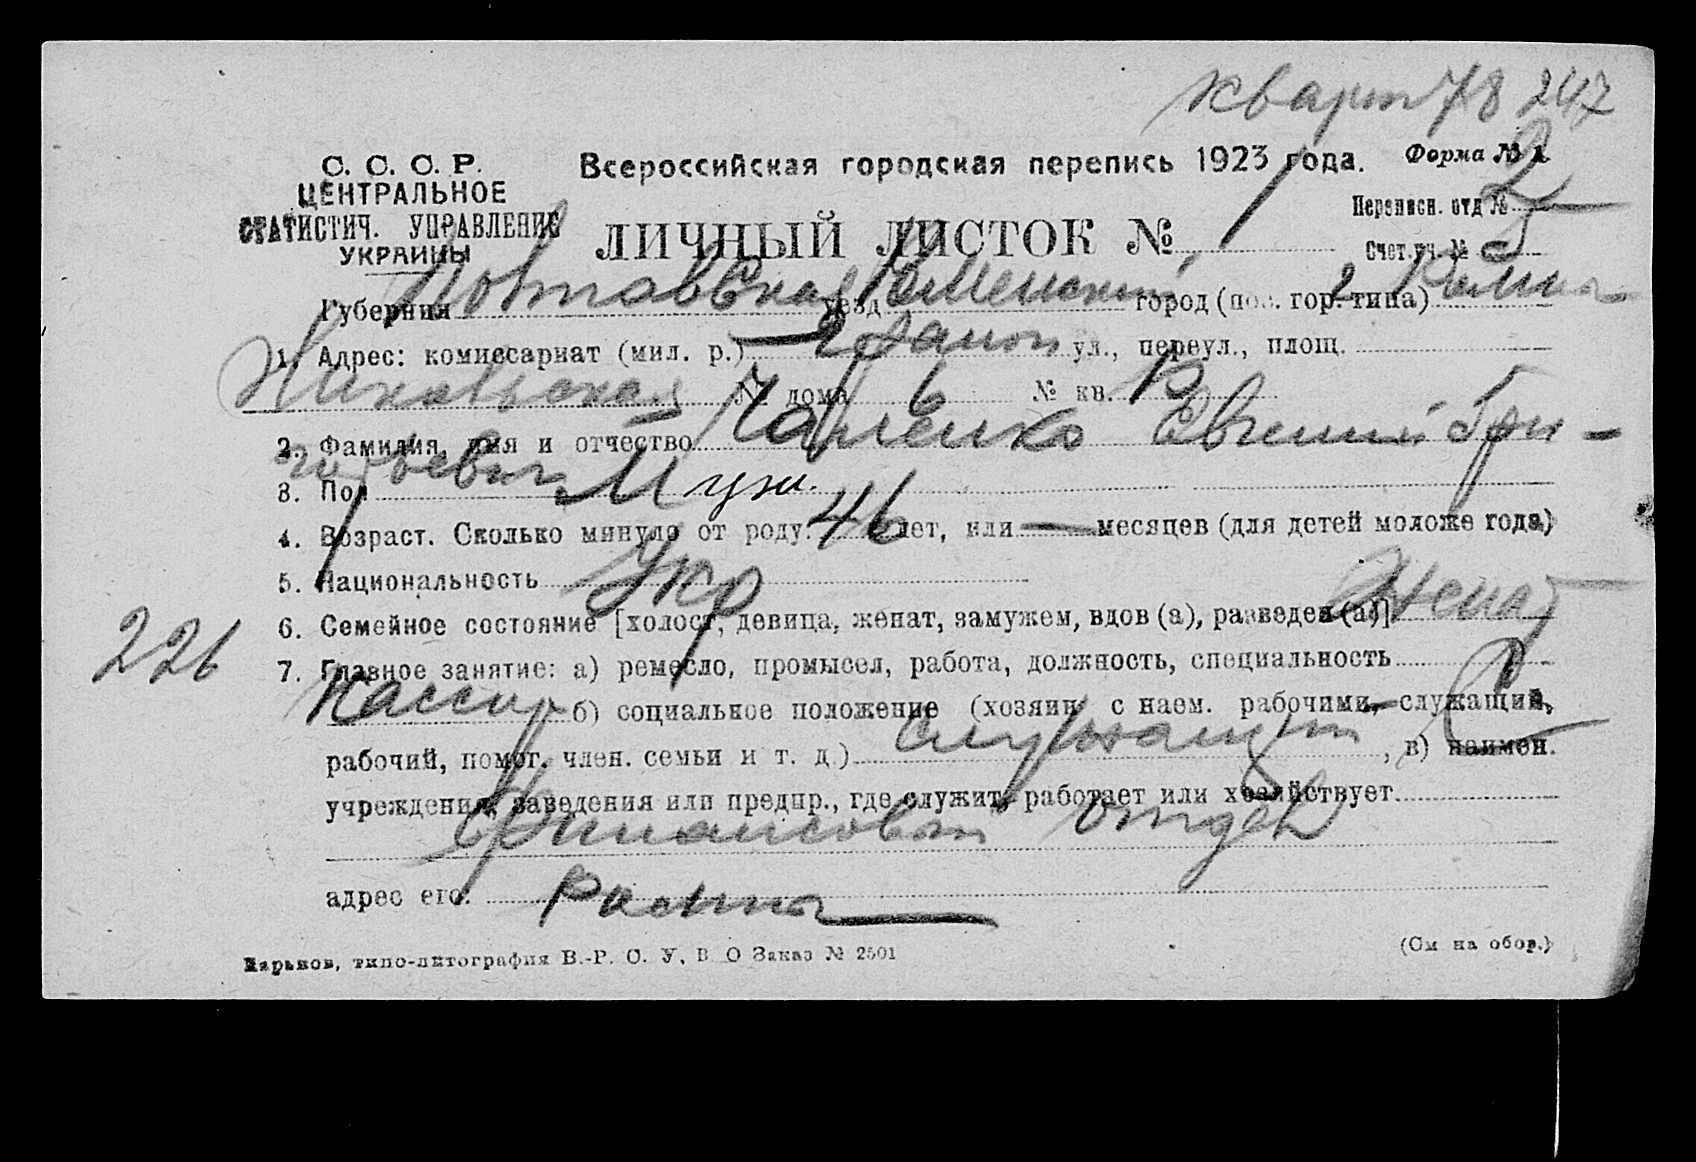 кварт 78 247
С. С. С. Р.
ЦЕНТРАЛЬНОЕ
СТАТИСТИЧ. УПРАВЛЕНИЕ
УКРАИНЫ
Всероссийская городская перепись 1923 года.
Форма № 2
ЛИЧНЫЙ ЛИСТОК № 1
Переписн. отд №
Счет. уч. №
Губерния Полтавская уезд Роменский город (пос. гор. типа) г. Ромны
1. Адрес: комиссариат (мил. р.) 2 район ул., переул., площ.
Никольская № дома 6 № кв.
2. Фамилия, имя и отчество Чапленко Евгений Гри-
горьевич
3. Пол Муж.
4. Возраст. Сколько минуло от роду: 46 лет, или — месяцев (для детей моложе года)
5. Национальность Укр
6. Семейное состояние [холост, девица, женат, замужем, вдов (а), разведен (а)] Женат
226
7. Главное занятие: а) ремесло, промысел, работа, должность, специальность
Кассир б) социальное положение (хозяин с наем. рабочими, служащий,
рабочий, помог. член. семьи и т. д.) служащий, в) наимен.
учреждения, заведения или предпр., где служит, работает или хозяйствует
Финансовый отдел
адрес его: Ромны
Харьков, типо-литография В.-Р. С. У. В. О Заказ № 2501
(См на обор.)